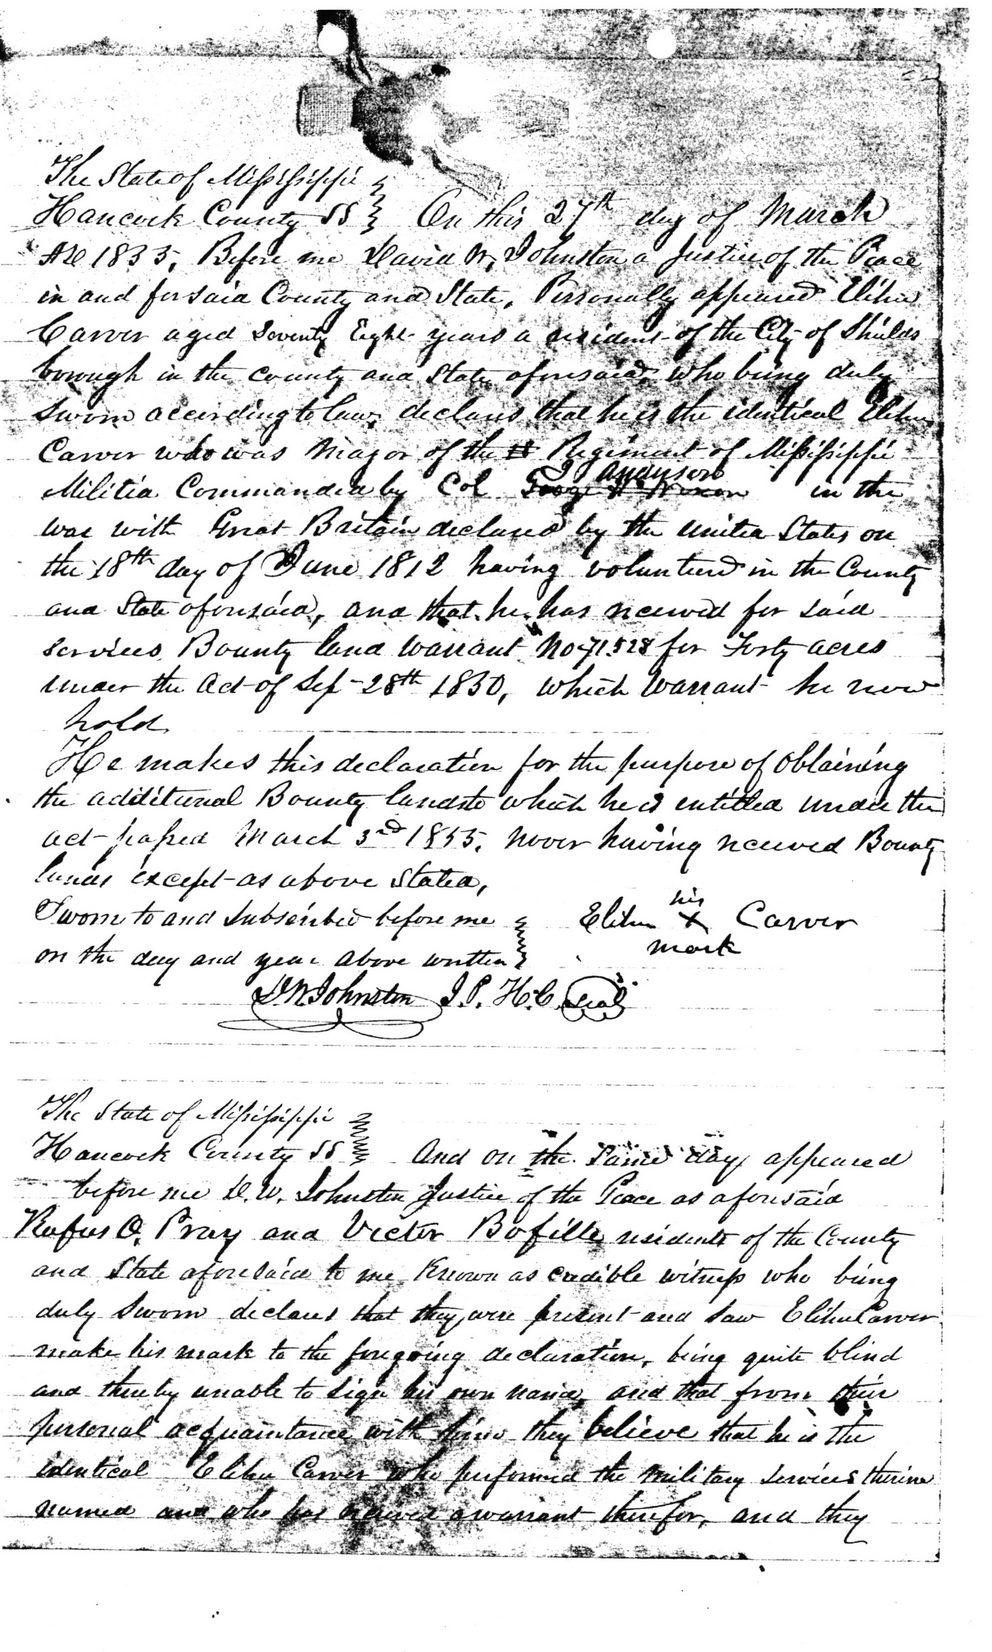 The State of Mississippi
Hancock County SS On this 27th day of March
AD 1855, Before me David W. Johnston a Justice of the Peace
in and for said County and State, Personally appeared Elihu
Carver aged Seventy Eight years a resident of the City of Shields
borough in the county and State aforesaid who being duly
sworn according to law, declares that he is the identical Elihu
Carver who was Major of the Regiment of Mississippi
Militia Commanded by Col George H Nixon in the
was with Great Britain declared by the United States on
the 18th day of June 1812 having volunteerd in the County
and State aforesaid, and that he has received for said
services Bounty land warrant No 71528 for Forty acres
under the Act of Sep 28th 1850, which warrant he now
hold
He makes this declaration for the purpose of obtaining
the additional Bounty lands to which he is entitled under the
act passed March 3rd 1855. never having received Bounty
lands except as above stated,
Sworn to and subscribed before me
on the day and year above written
his
Elihu X Carver
mark
D W Johnston J. P. H. C. Seal
The State of Mississippi
Hancock County SS And on the same day appeared
before me D. W. Johnston Justice of the Peace as aforesaid
Rufus O. Pray and Victor Bofille residents of the County
and State aforesaid to me Known as credible witness who being
duly sworn declares that they were present and saw Elihu Carver
make his mark to the foregoing declaration, being quite blind
and thereby unable to sign his own name, and that from their
personal acquaintance with him they believe that he is the
identical Elihu Carver who performed the military services therein
named and who has received a warrant therefor, and they